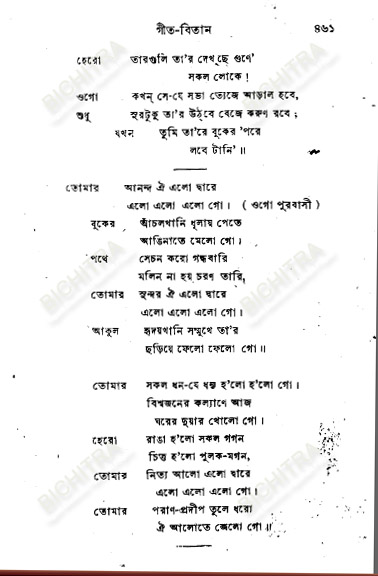 গীত-বিতান ৪৬১
হেরো তারগুলি তা'র দেখছে গুণে'
সকল লোকে!
ওগো কখন্ সে-যে সভা ত্যেজে আড়াল হবে,
শুধু সুরটুকু তা'র উঠ্‌বে বেজে করুণ রবে;
যখন তুমি তা'রে বুকের 'পরে
লবে টানি'॥
তোমার আনন্দ ঐ এলো দ্বারে
এলো এলো এলো গো। (ওগো পুরবাসী)
বুকের আঁচলখানি ধূলায় পেতে
আঙিনাতে মেলো গো।
পথে সেচন করো গন্ধবারি
মলিন না হয় চরণ তারি,
তোমার সুন্দর ঐ এলো দ্বারে
এলো এলো এলো গো।
আকুল হৃদয়খানি সম্মুখে তা'র
ছড়িয়ে ফেলো ফেলো গো॥
তোমার সকল ধন-যে ধন্য হ'লো হ'লো গো।
বিশ্বজনের কল্যাণে আজ
ঘরের দুয়ার খোলো গো।
হেরো রাঙা হ'লো সকল গগন
চিত্ত হ'লো পুলক-মগন,
তোমার নিত্য আলো এলো দ্বারে
এলো এলো এলো গো।
তোমার পরাণ-প্রদীপ তুলে ধরো
ঐ আলোতে জ্বেলো গো॥
BICHITRA
BICHITRA
BICHITRA
BICHITRA
BICHITRA
BICHITRA